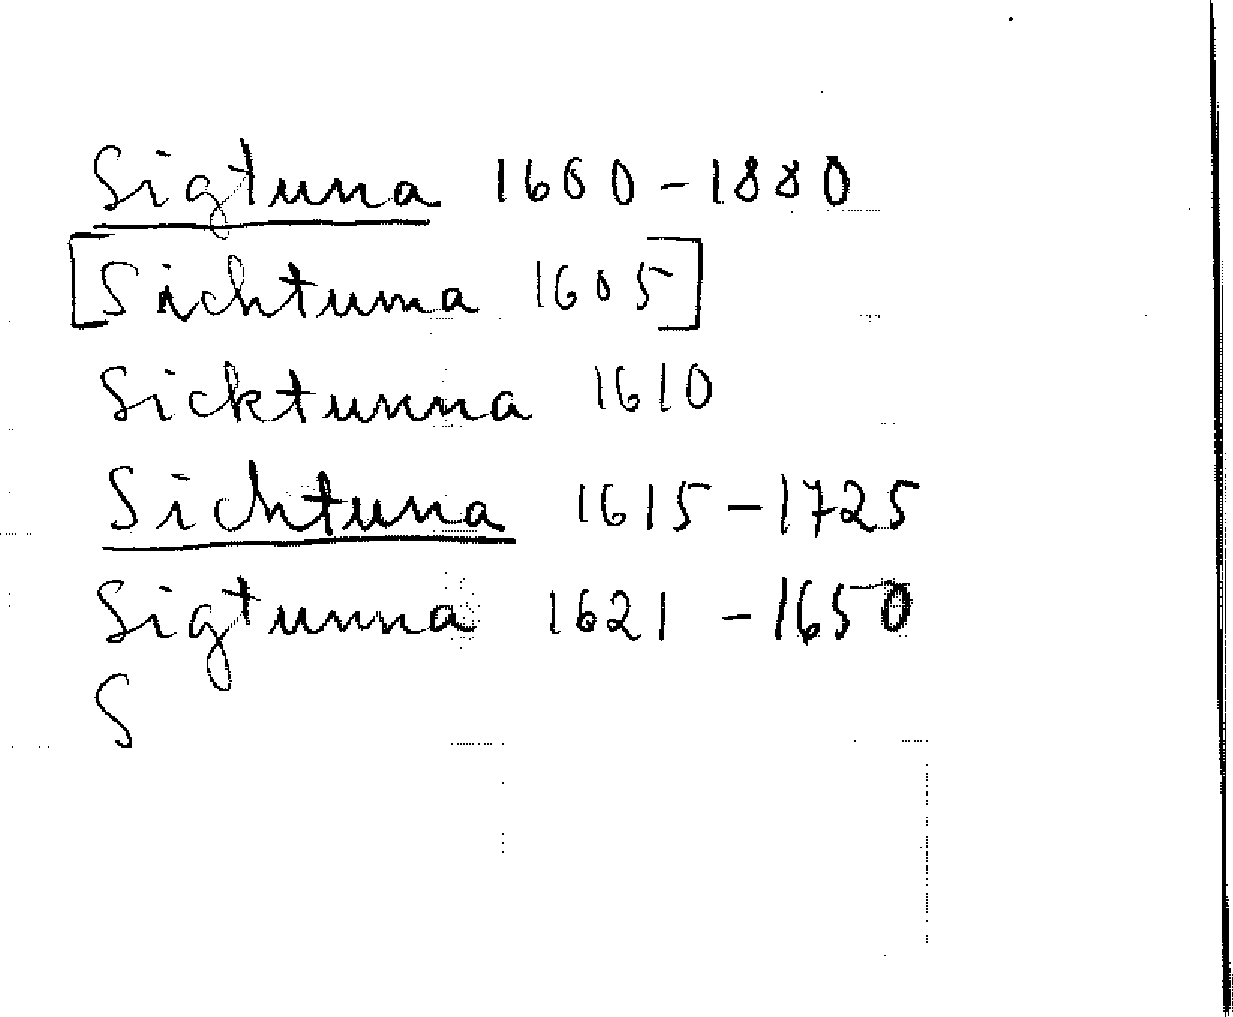 Sigtuna 1660-1880
[Sichtuma 1605]
Sicktunna 1610
Sichtuna 1615-1725
Sigtunna 1621-1650
S